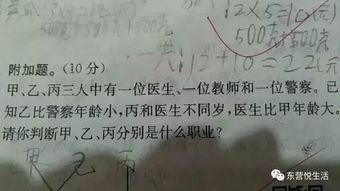 12×5=10(元)
500克+500克
一共12+10=22(元
附加题。(10 分)
甲、乙、丙三人中有一位医生、一位教师和一位警察。已
知乙比警察年龄小,丙和医生不同岁,医生比甲年龄大。
请你判断甲、乙、丙分别是什么职业?
甲 乙 丙
东营悦生活